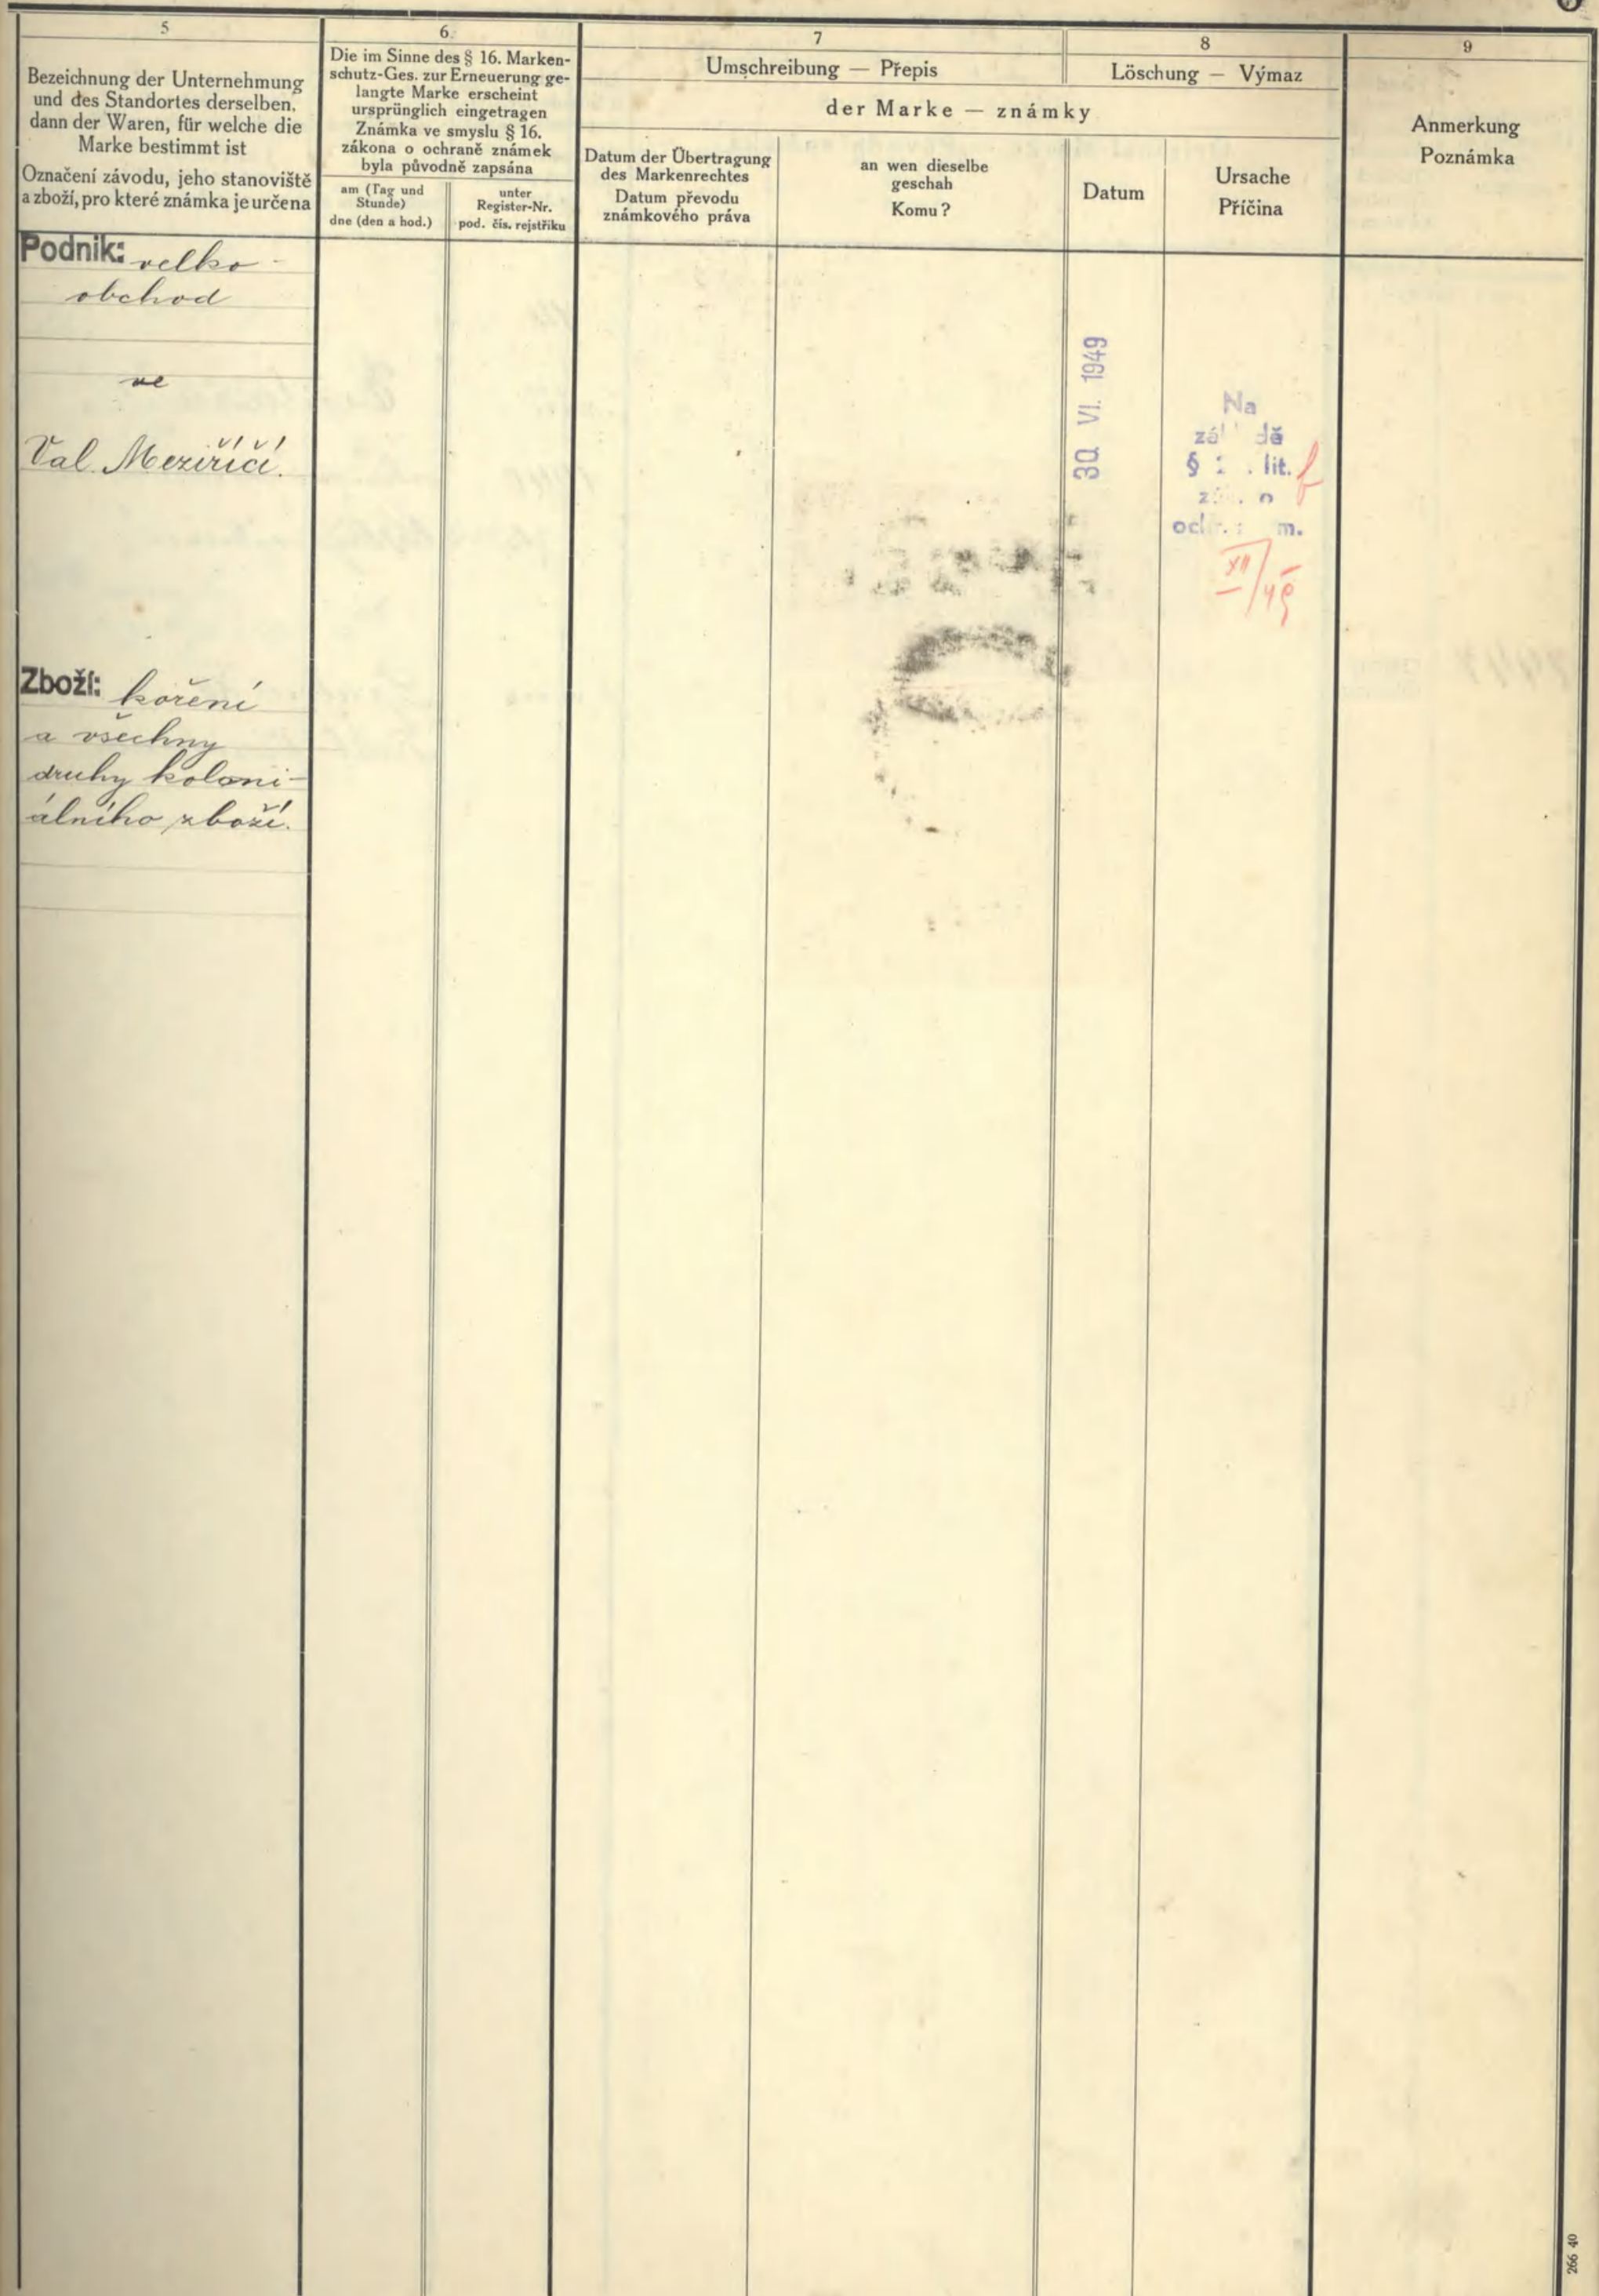 5
Bezeichnung der Unternehmung
und des Standortes derselben,
dann der Waren, für welche die
Marke bestimmt ist
Označení závodu, jeho stanoviště
a zboží, pro které známka je určena
6.
Die im Sinne des § 16. Marken-
schutz-Ges. zur Erneuerung ge-
langte Marke erscheint
ursprünglich eingetragen
Známka ve smyslu § 16.
zákona o ochraně známek
byla původně zapsána
am (Tag und
Stunde)
dne (den a hod.)
unter
Register-Nr.
pod. čís. rejstříku
7
Umschreibung — Přepis
8
Löschung — Výmaz
der Marke — známky
Datum der Übertragung
des Markenrechtes
Datum převodu
známkového práva
an wen dieselbe
geschah
Komu?
Datum
Ursache
Příčina
9
Anmerkung
Poznámka
Podnik: velko-
obchod
ve
Val. Meziříčí.
Zboží: koření
a všechny
druhy koloni-
álního zboží.
30. VI. 1949
Na
§ lit. f
m.
266 40